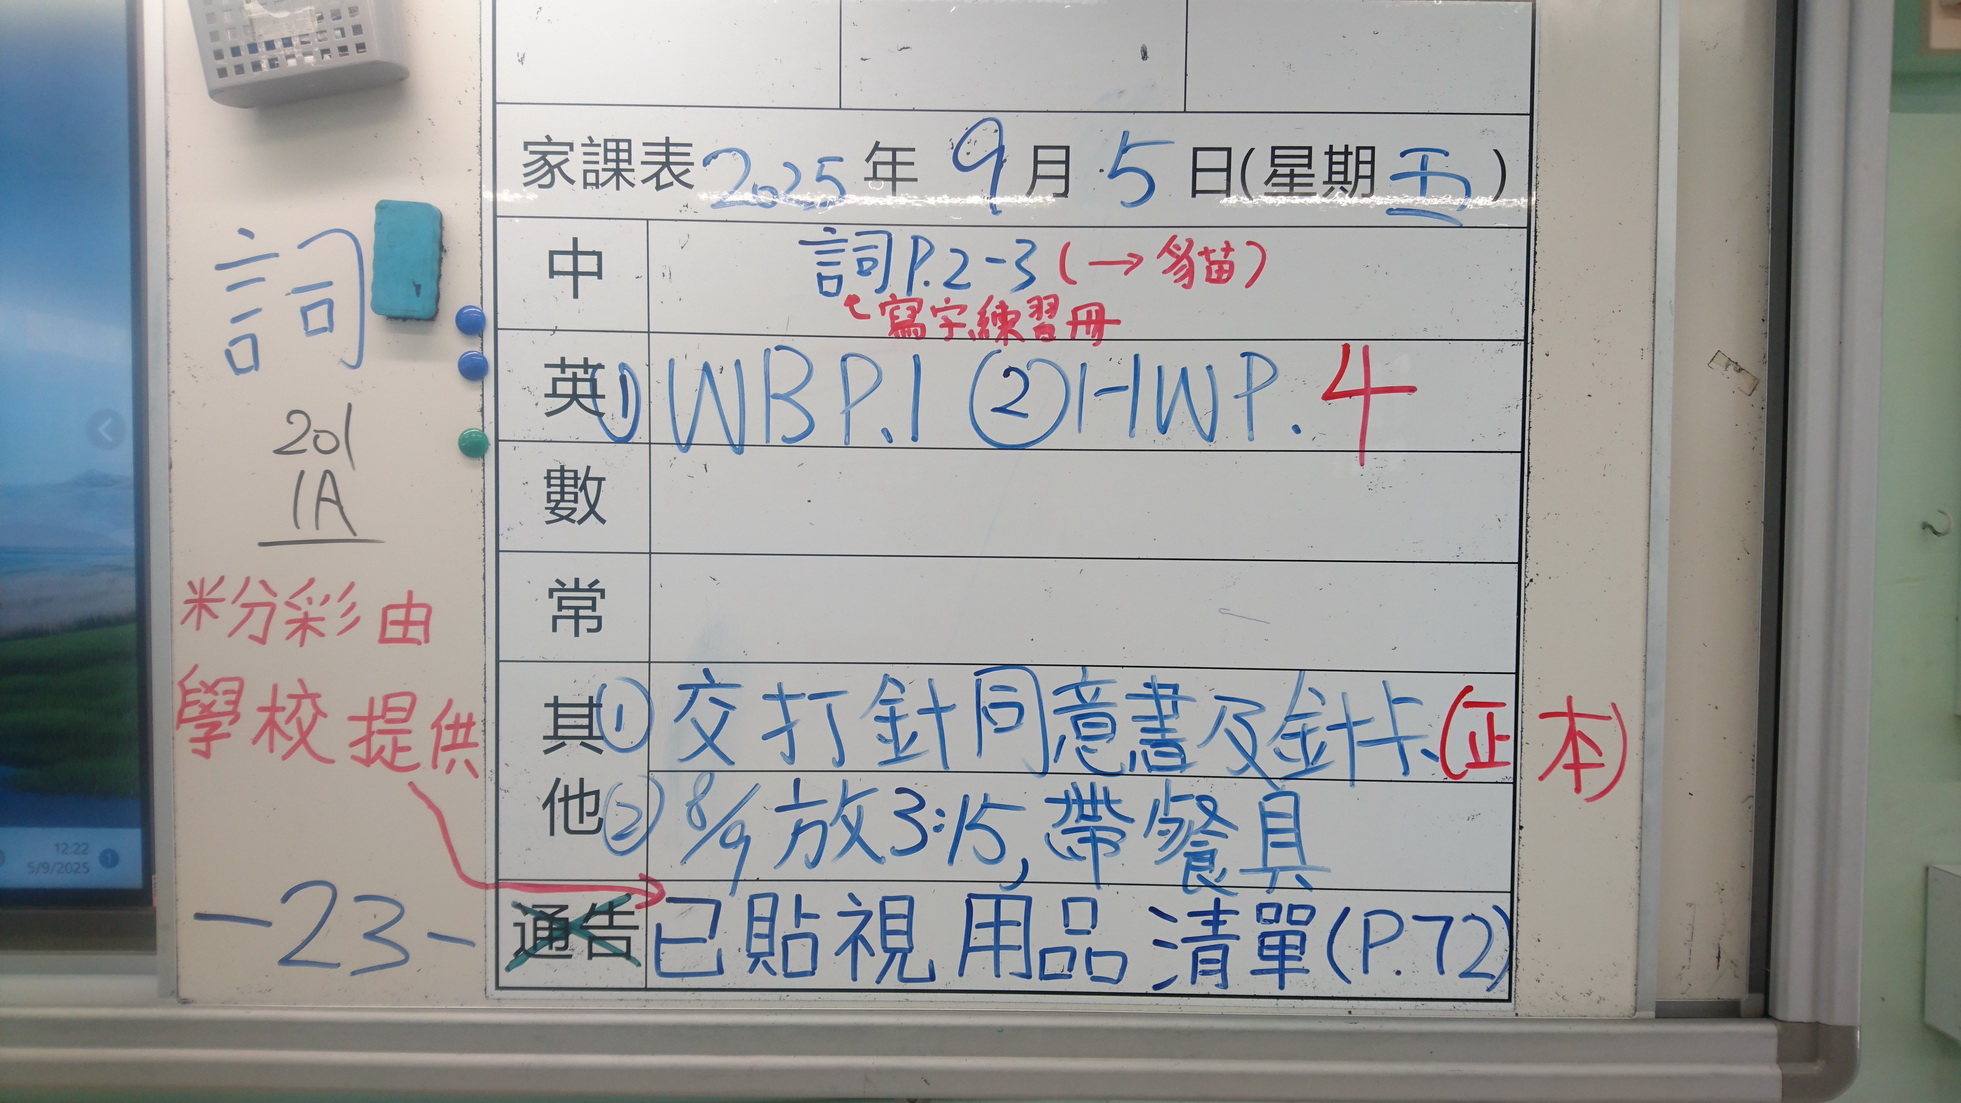 家課表 2025 年 9 月 5 日(星期 五)
中 詞P.2-3 (→ 豸苗)
寫字練習冊
英 ① WB P.1 ② HW P. 4
數
常
其他 ① 交打針同意書及針卡(正本)
② 8/9 放3:15, 帶餐具
通告 已貼視用品清單(P.72)
詞
201
1A
粉彩由
學校提供
-23-
12:22
5/9/2025